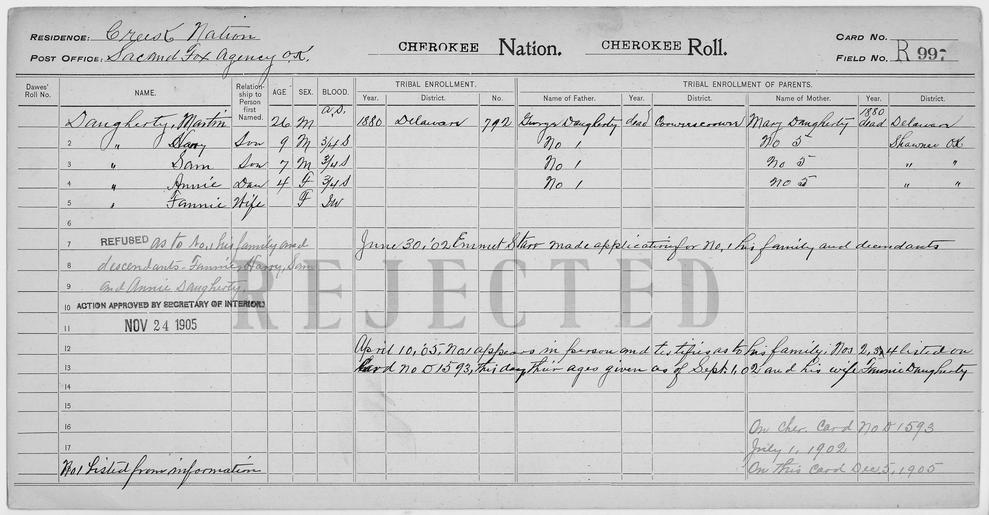 RESIDENCE: Creek Nation
POST OFFICE: Sac and Fox Agency OK.
CHEROKEE Nation. CHEROKEE Roll.
CARD NO.
FIELD NO. R 997
Dawes' Roll No. NAME. Relationship to Person first Named. AGE SEX. BLOOD. TRIBAL ENROLLMENT. Year. District. No. TRIBAL ENROLLMENT OF PARENTS. Name of Father. Year. District. Name of Mother. Year. District.
Daugherty, Martin 26 M A.S. 1880 Delaware 792 George Daugherty dead Mary Daugherty 1880 dead Delaware
2 " Harry Son 9 M 3/4 S No 1 No 5 Shawnee OK
3 " Sam Son 7 M 3/4 S No 1 No 5 " "
4 " Annie Dau 4 F 3/4 S No 1 No 5 " "
5 " Fannie Wife F IW
6
7 REFUSED as to No. 1 his family and June 30, '02 Emmet Starr made application for No. 1 his family and decendants
8 descendants - Fannie, Harry, Sam
9 and Annie Daugherty.
10 ACTION APPROVED BY SECRETARY OF INTERIOR
REJECTED
11 NOV 24 1905
12 April 10, '05, No. 1 appears in person and testifies as to his family; Nos 2, 3, 4 listed on
13 Card No D 1593, this day their ages given as of Sept. 1, 02 and his wife Fannie Daugherty
14
15
16 On Cher. Card No D 1593
17 July 1, 1902
No 1 Listed from information On this Card Dec. 5, 1905